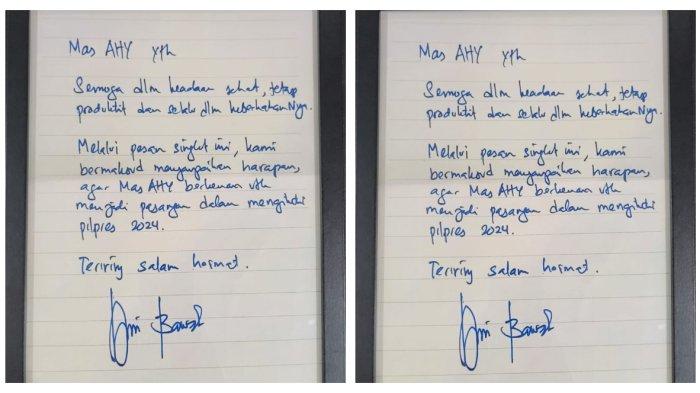 Mas AHY Yth
Semoga dlm keadaan sehat, tetap
produktif dan selalu dlm keberkahanNya.
Melalui pesan singkat ini, kami
bermaksud menyampaikan harapan,
agar Mas AHY berkenan utk
menjadi pasangan dalam mengikuti
pilpres 2024.
Teriring salam hormat.
Mas AHY Yth
Semoga dlm keadaan sehat, tetap
produktif dan selalu dlm keberkahanNya.
Melalui pesan singkat ini, kami
bermaksud menyampaikan harapan,
agar Mas AHY berkenan utk
menjadi pasangan dalam mengikuti
pilpres 2024.
Teriring salam hormat.